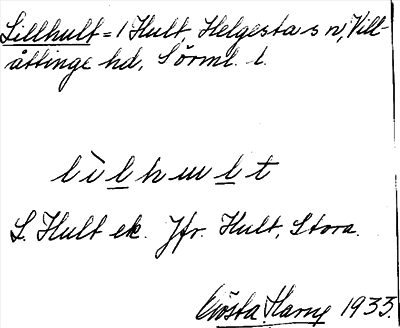 Lillhult = 1 Hult, Helgesta sn, Vill-
åttinge hd, Sörml. l.
lìlhult
L. Hult ek. Jfr. Hult, Stora.
Gösta Harny 1933.